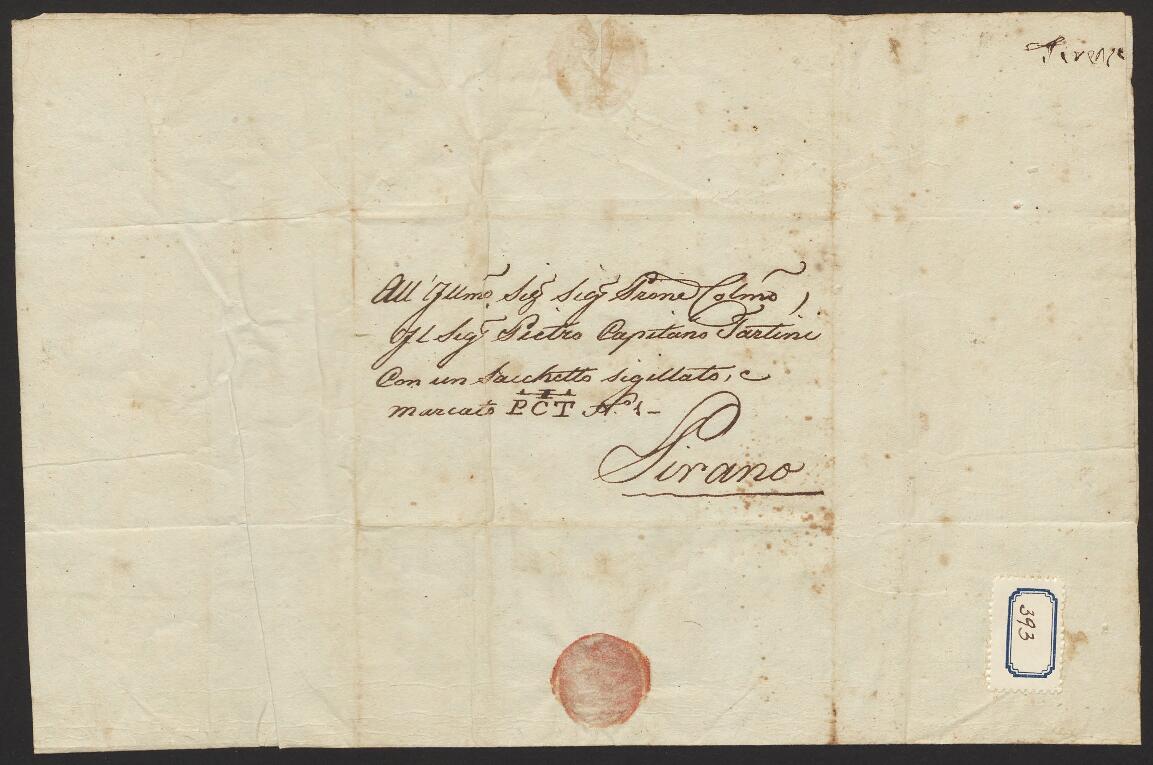 Firenze
All' Illmo Sigr Sigr Prone Colmo
Il Sigr Pietro Capitano Tartini
Con un Sacchetto sigillato, e
marcato PCT No 1 -
Pirano
393